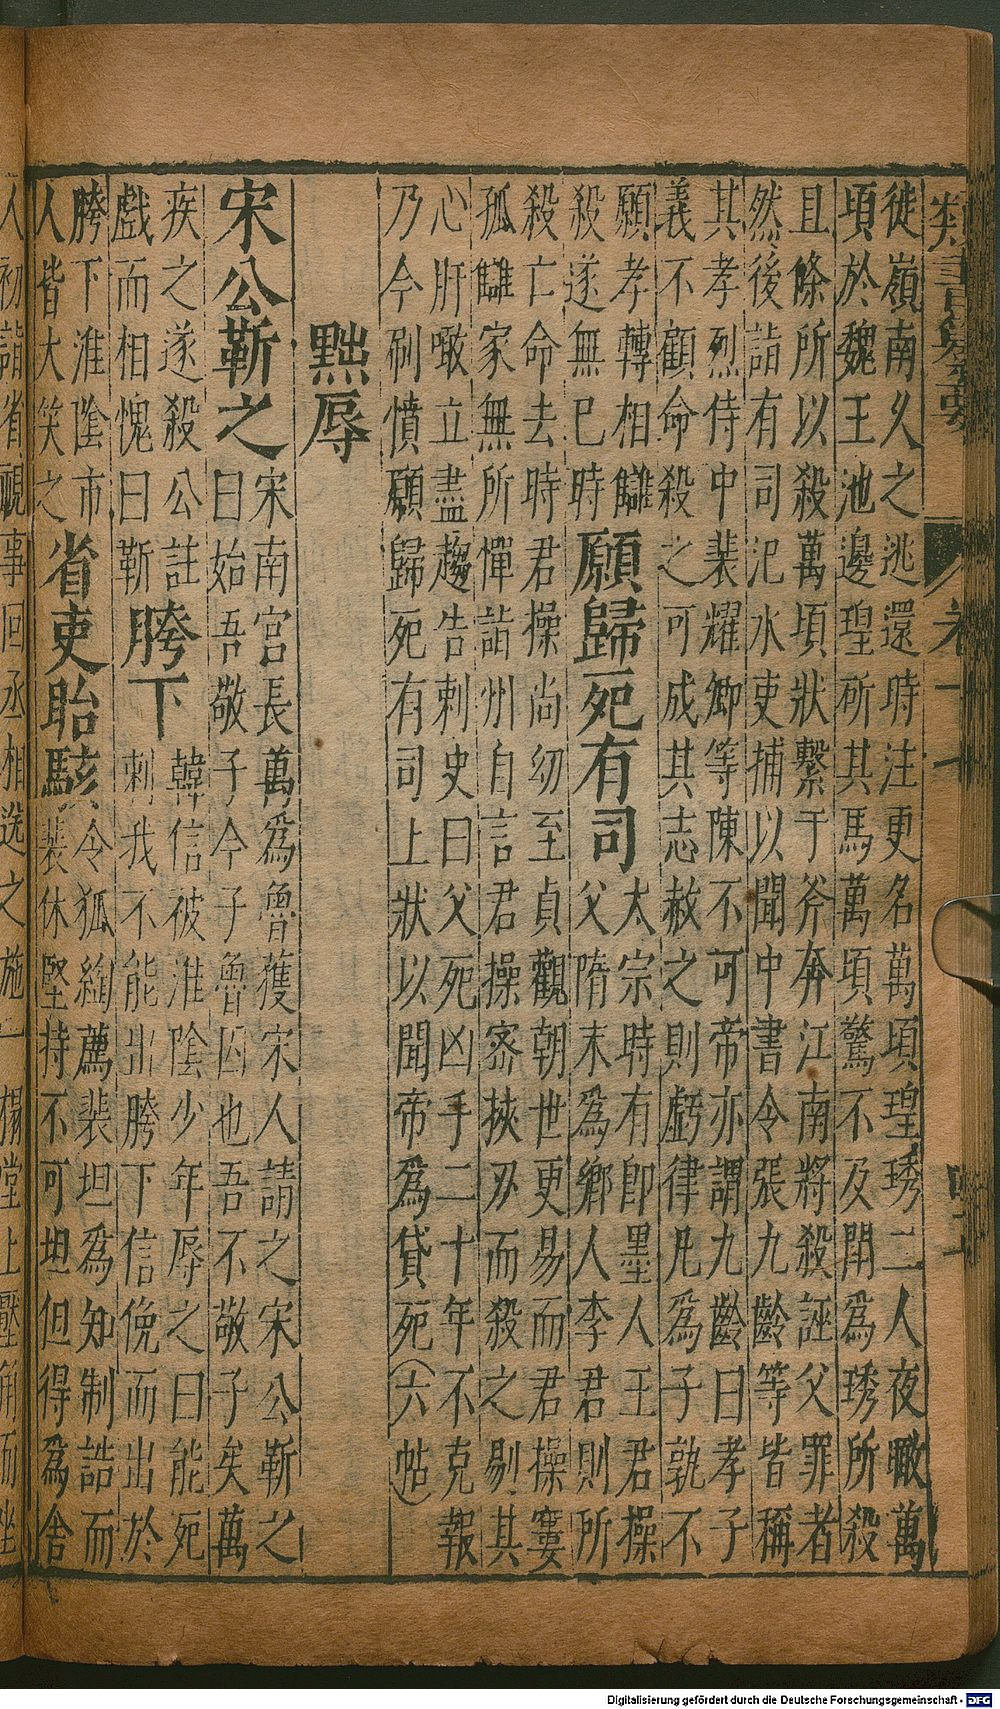 類書纂要
徙嶺南久之逃還時汪更名萬頃瑝琇二人夜瞰萬
頃於魏王池邊瑝斫其馬萬頃驚不及閗為琇所殺
且條所以殺萬頃狀繫于斧奔江南將殺誣父罪者
然後詣有司汜水吏捕以聞中書令張九齡等皆稱
其孝烈侍中裴耀卿等陳不可帝亦謂九齡曰孝子
義不顧命殺之可成其志赦之則虧律凡為子孰不
願孝轉相讎
殺遂無已時
願歸死有司
太宗時有卽墨人王君操
父隋末為鄉人李君則所
殺亡命去時君操尚幼至貞觀朝世更易而君操窶
孤讎家無所憚詣州自言君操密挾刃而殺之剔其
心肝噉立盡趨告刺史曰父死凶手二十年不克報
乃今刷憤願歸死有司上狀以聞帝為貸死(六帖)
黜辱
宋公靳之
宋南宮長萬為魯獲宋人請之宋公靳之
曰始吾敬子今子魯囚也吾不敬子矣萬
疾之遂殺公註
戲而相愧曰靳
胯下
韓信被淮陰少年辱之曰能死
刺我不能出胯下信俛而出於
胯下淮陰市
人皆大笑之
省吏眙駭
令狐綯薦裴坦為知制誥而
裴休堅持不可坦但得為舍
人初詣省視事回丞相送之施一榻堂上壓角而坐
Digitalisierung gefördert durch die Deutsche Forschungsgemeinschaft - DFG